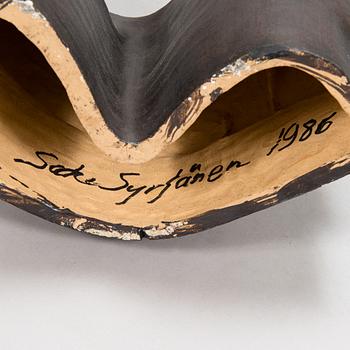 Sake Syrjänen 1986